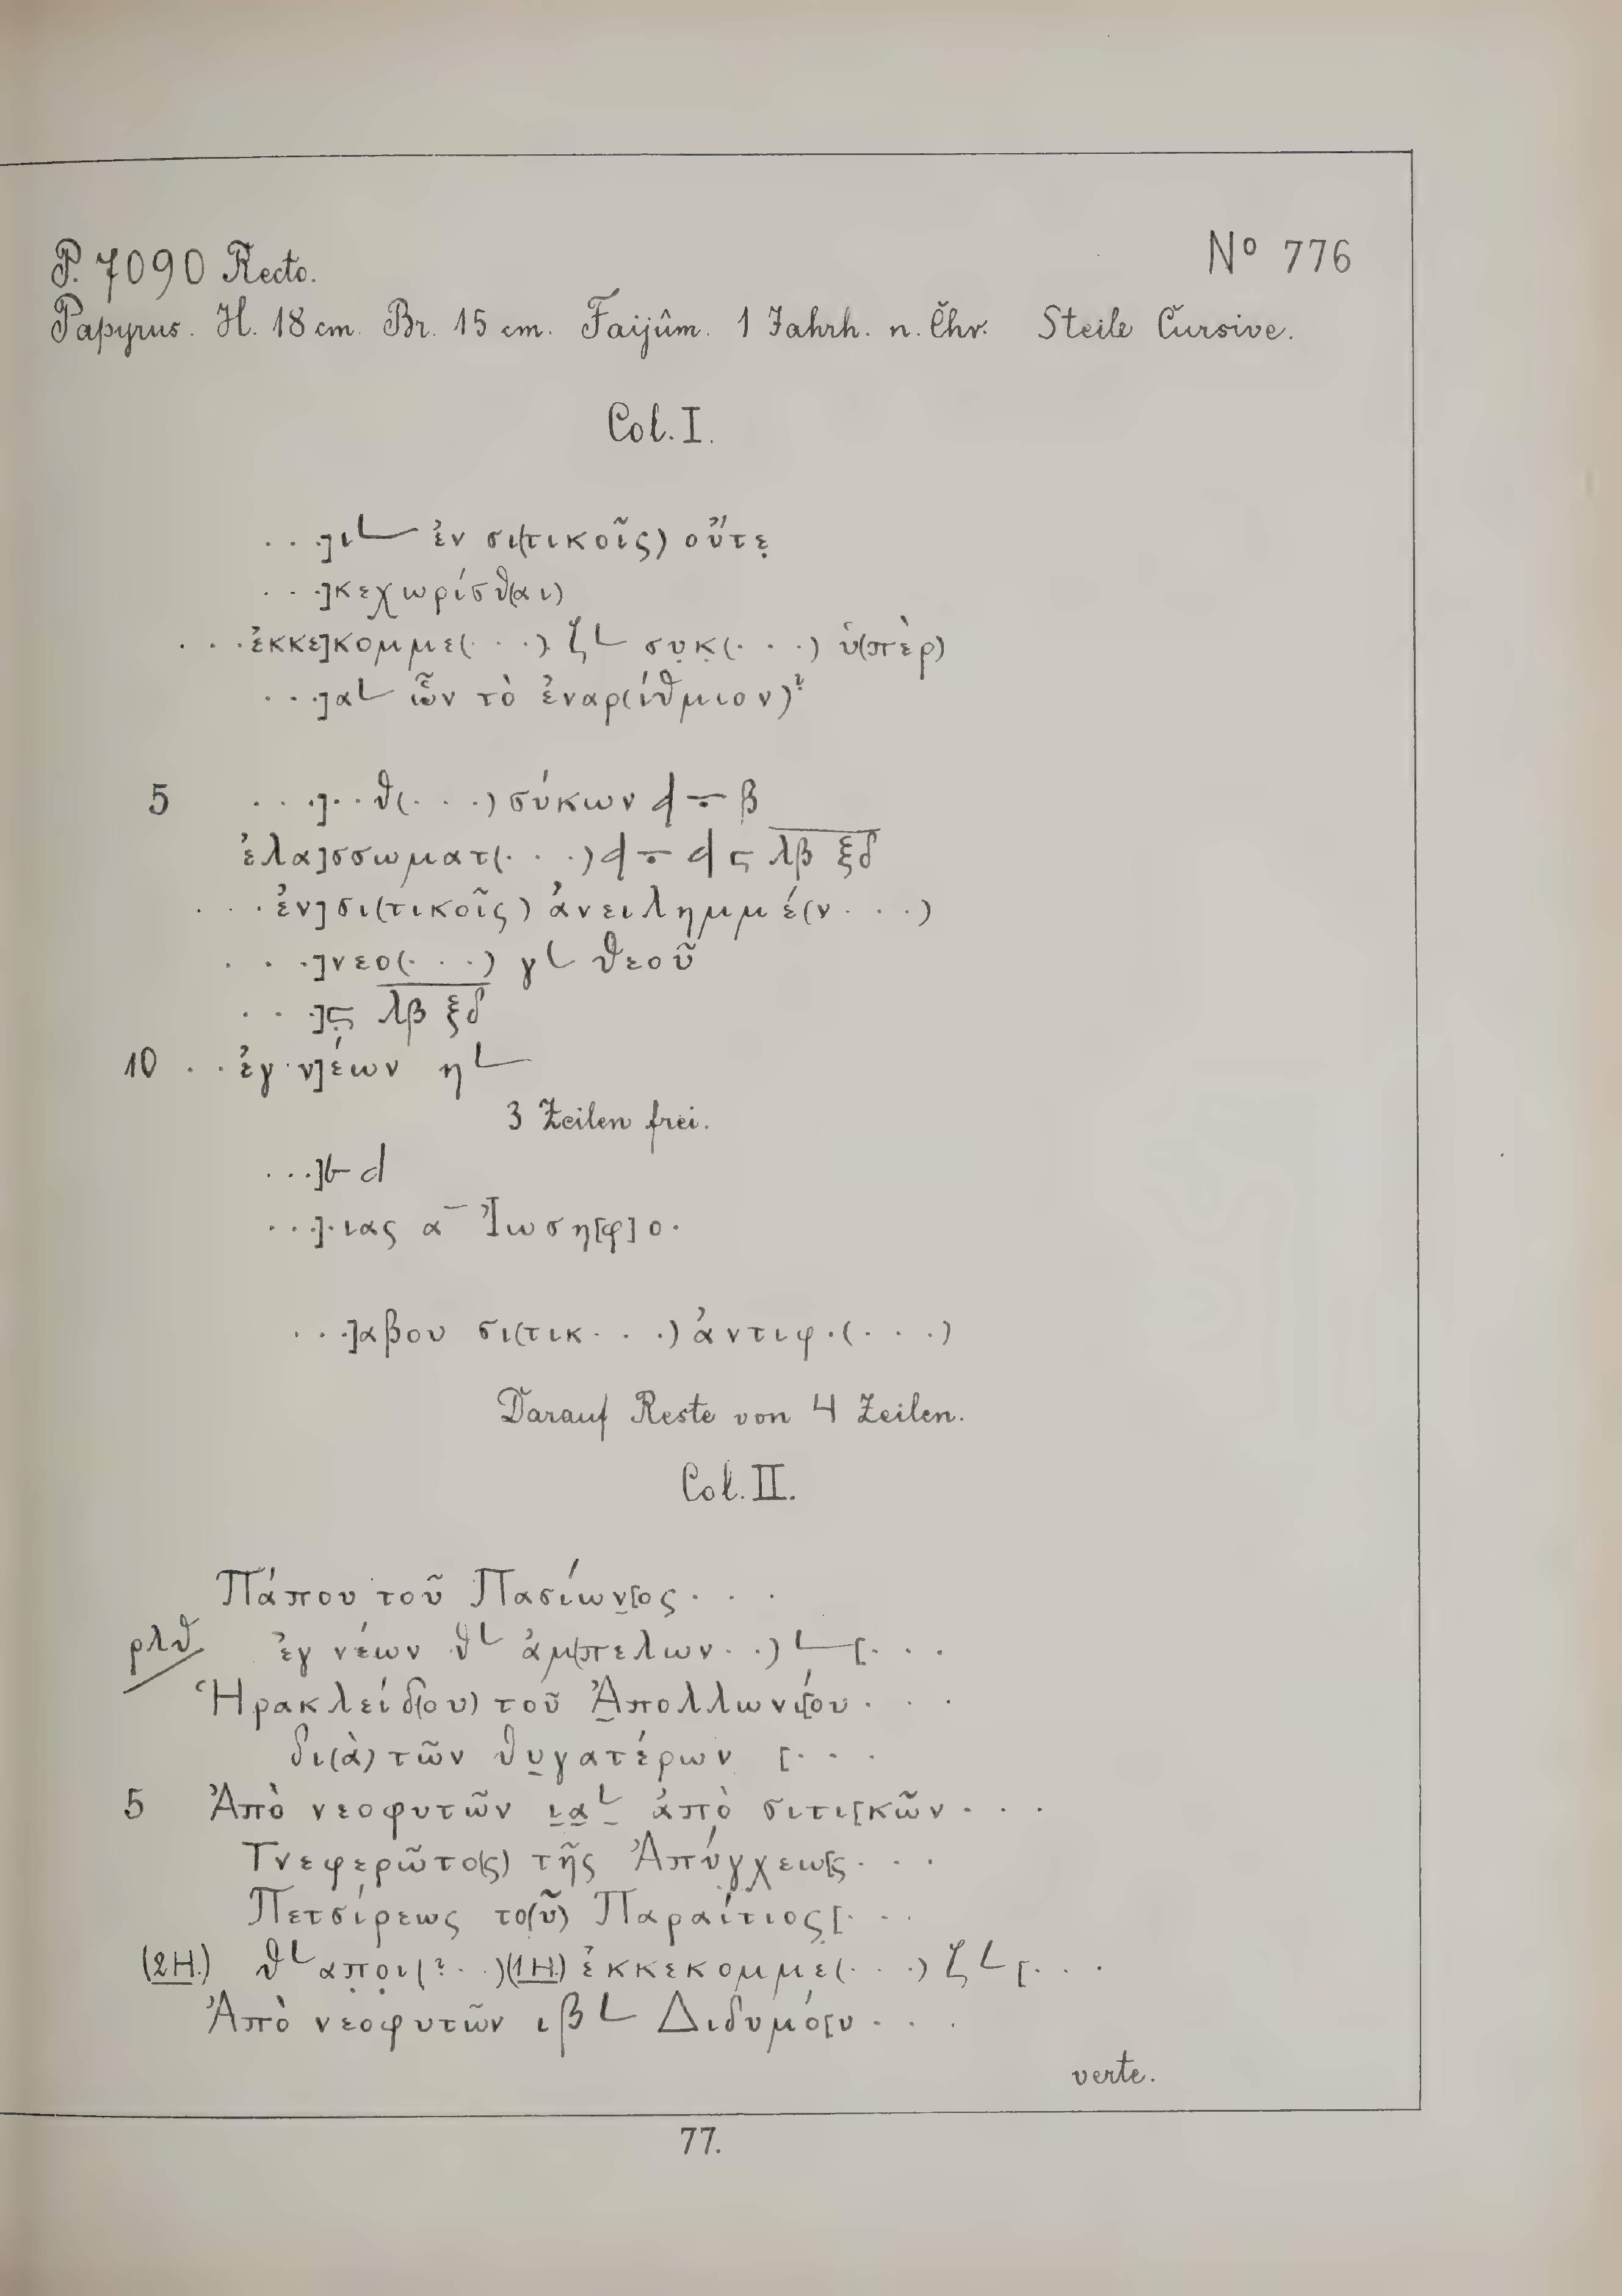 P. 7090 Recto.
Nº 776
Papyrus. H. 18 cm. Br. 15 cm. Faijûm. 1 Jahrh. n. Chr. Steile Cursive.
Col. I.
. . .]ι𐅹 ἐν σι(τικοῖς) οὔτε̣
. . .]κεχωρίσθ(αι)
. . . ἐκκε]κομμε(. . .) ζ𐅹 συ̣κ̣(. . .) ὑ(πὲρ)
. . .]α𐅹 ὧν τὸ ἐναρ(ίθμιον)?
5 . . .]. . θ(. . .) σύκων β
ἐλα]σσωματ(. . .) λβ ξδ
. . . ἐν] σι(τικοῖς) ἀνειλημμέ(ν . . .)
. . .]νεο(. . .) γ𐅹 θεοῦ
. . .] λβ ξδ
10 . . ἐγ ν]έων η𐅹
3 Zeilen frei.
. . .] d
. . .]. ιας α¯ Ἰωση[φ]ο .
. . .]αβου σι(τικ . . .) ἀντιφ .(. . .)
Darauf Reste von 4 Zeilen.
Col. II.
Πάπου τοῦ Πασίων̣[ος . . .
ρλθ ἐγ νέων θ𐅹 ἀμ(πελων . .) 𐅹 [. . .
Ἡρακλείδ(ου) τοῦ Ἀ̣πολλωνί[ου . . .
δι(ὰ) τῶν θυ̣γατέρων [. . .
5 Ἀπὸ νεοφυτῶν ι̣α̣𐅹 ἀπὸ σιτι[κῶν . . .
Τνεφερῶτο(ς) τῆς Ἀπύγχεω[ς . . .
Πετσίρεως το(ῦ) Παραίτιος̣[. . .
(2H.) θ𐅹 απ̣ο̣ι(? . .) (1H.) ἐκκεκομμε(. . .) ζ𐅹 [. . .
Ἀπὸ νεοφυτῶν ιβ𐅹 Διδύμο[υ . . .
verte.
77.